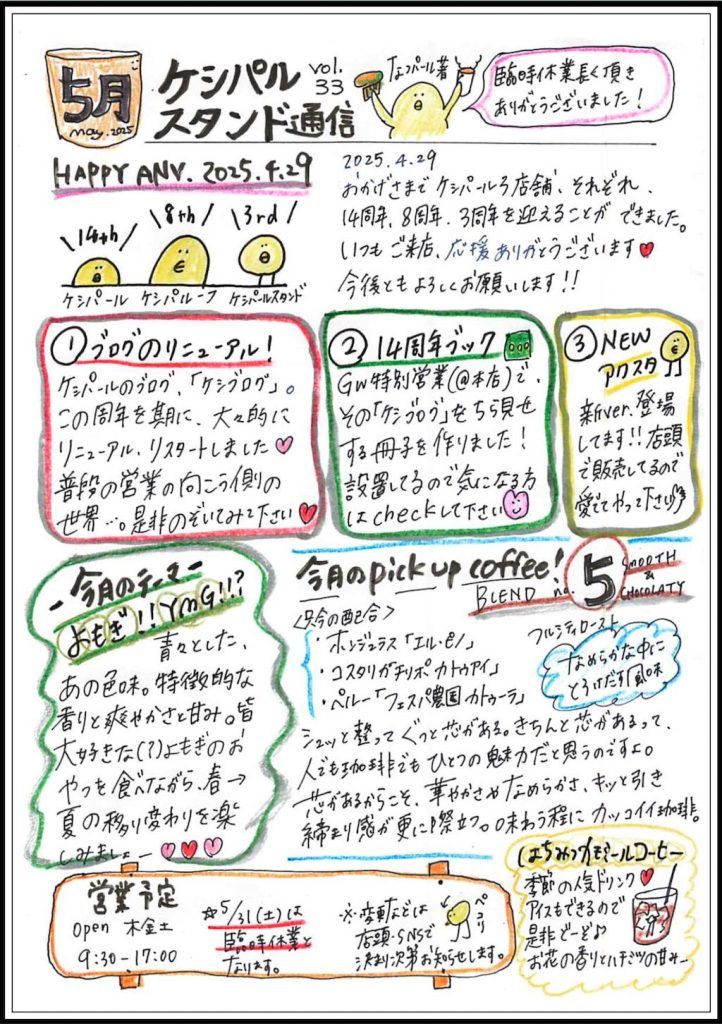 5月
may.2025
ケシパル
スタンド通信
vol.
33
なつパール著
臨時休業長く頂き
ありがとうございました！
HAPPY ANV. 2025.4.29
14th
8th
3rd
ケシパール
ケシパルーフ
ケシパールスタンド
2025.4.29
おかげさまで ケシパール3店舗、それぞれ、
14周年、8周年、3周年を迎えることが できました。
いつも ご来店、応援ありがとうございます♥
今後とも よろしくお願いします!!
① ブログのリニューアル！
ケシパールのブログ、「ケシブログ」。
この周年を期に、大々的に
リニューアル、リスタートしました♡
普段の営業の向こう側の
世界…。是非のぞいてみて下さい♥
② 14周年ブック
GW特別営業(@本店)で、
その「ケシブログ」をちら見せ
する冊子を作りました！
設置してるので気になる方
はcheckして下さい
③ NEW
アクスタ
新ver.登場
してます!!店頭
で販売してるので
愛でてやって下さい
今月のテーマ
よもぎ!!YMG!!?
青々とした、
あの色味。特徴的な
香りと爽やかさと甘み。皆
大好きな(?)よもぎのお
やつを食べながら、春→
夏の移り変わりを楽
しみましょー♥♥♥
今月のpick up coffee!
BLEND no. 5 SMOOTH
&
CHOCOLATY
フルシティロースト
<只今の配合>
・ホンジュラス「エル・ピノ」
・コスタリカ「チリポ カトゥアイ」
・ペルー「フェスパ農園 カトゥーラ」
なめらかな中に
とろけだす風味
シュッと整って ぐっと芯がある。きちんと芯があるって、
人でも珈琲でも ひとつの魅力だと思うのですよ。
芯があるからこそ、華やかさや なめらかさ、キッと引き
締まり感が更に際立つ。味わう程に カッコイイ珈琲。
はちみつカモミールコーヒー
季節の人気ドリンク♥
アイスもできるので
是非どーぞ♪
お花の香りとハチミツの甘みー
営業予定
open 木金土
9:30-17:00
☆5/31(土)は
臨時休業と
なります。
※変動などは
店頭・SNSで
決まり次第お知らせします。
ペコリ